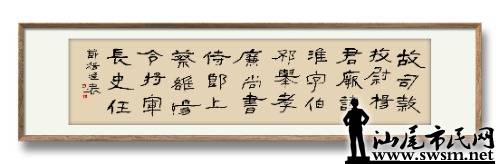 故司隸
校尉楊
君厥諱
淮字伯
邳舉孝
廉尚書
侍郎上
蔡雒陽
令將軍
長史任
節楊淮表
汕尾市民网
www.swsm.net